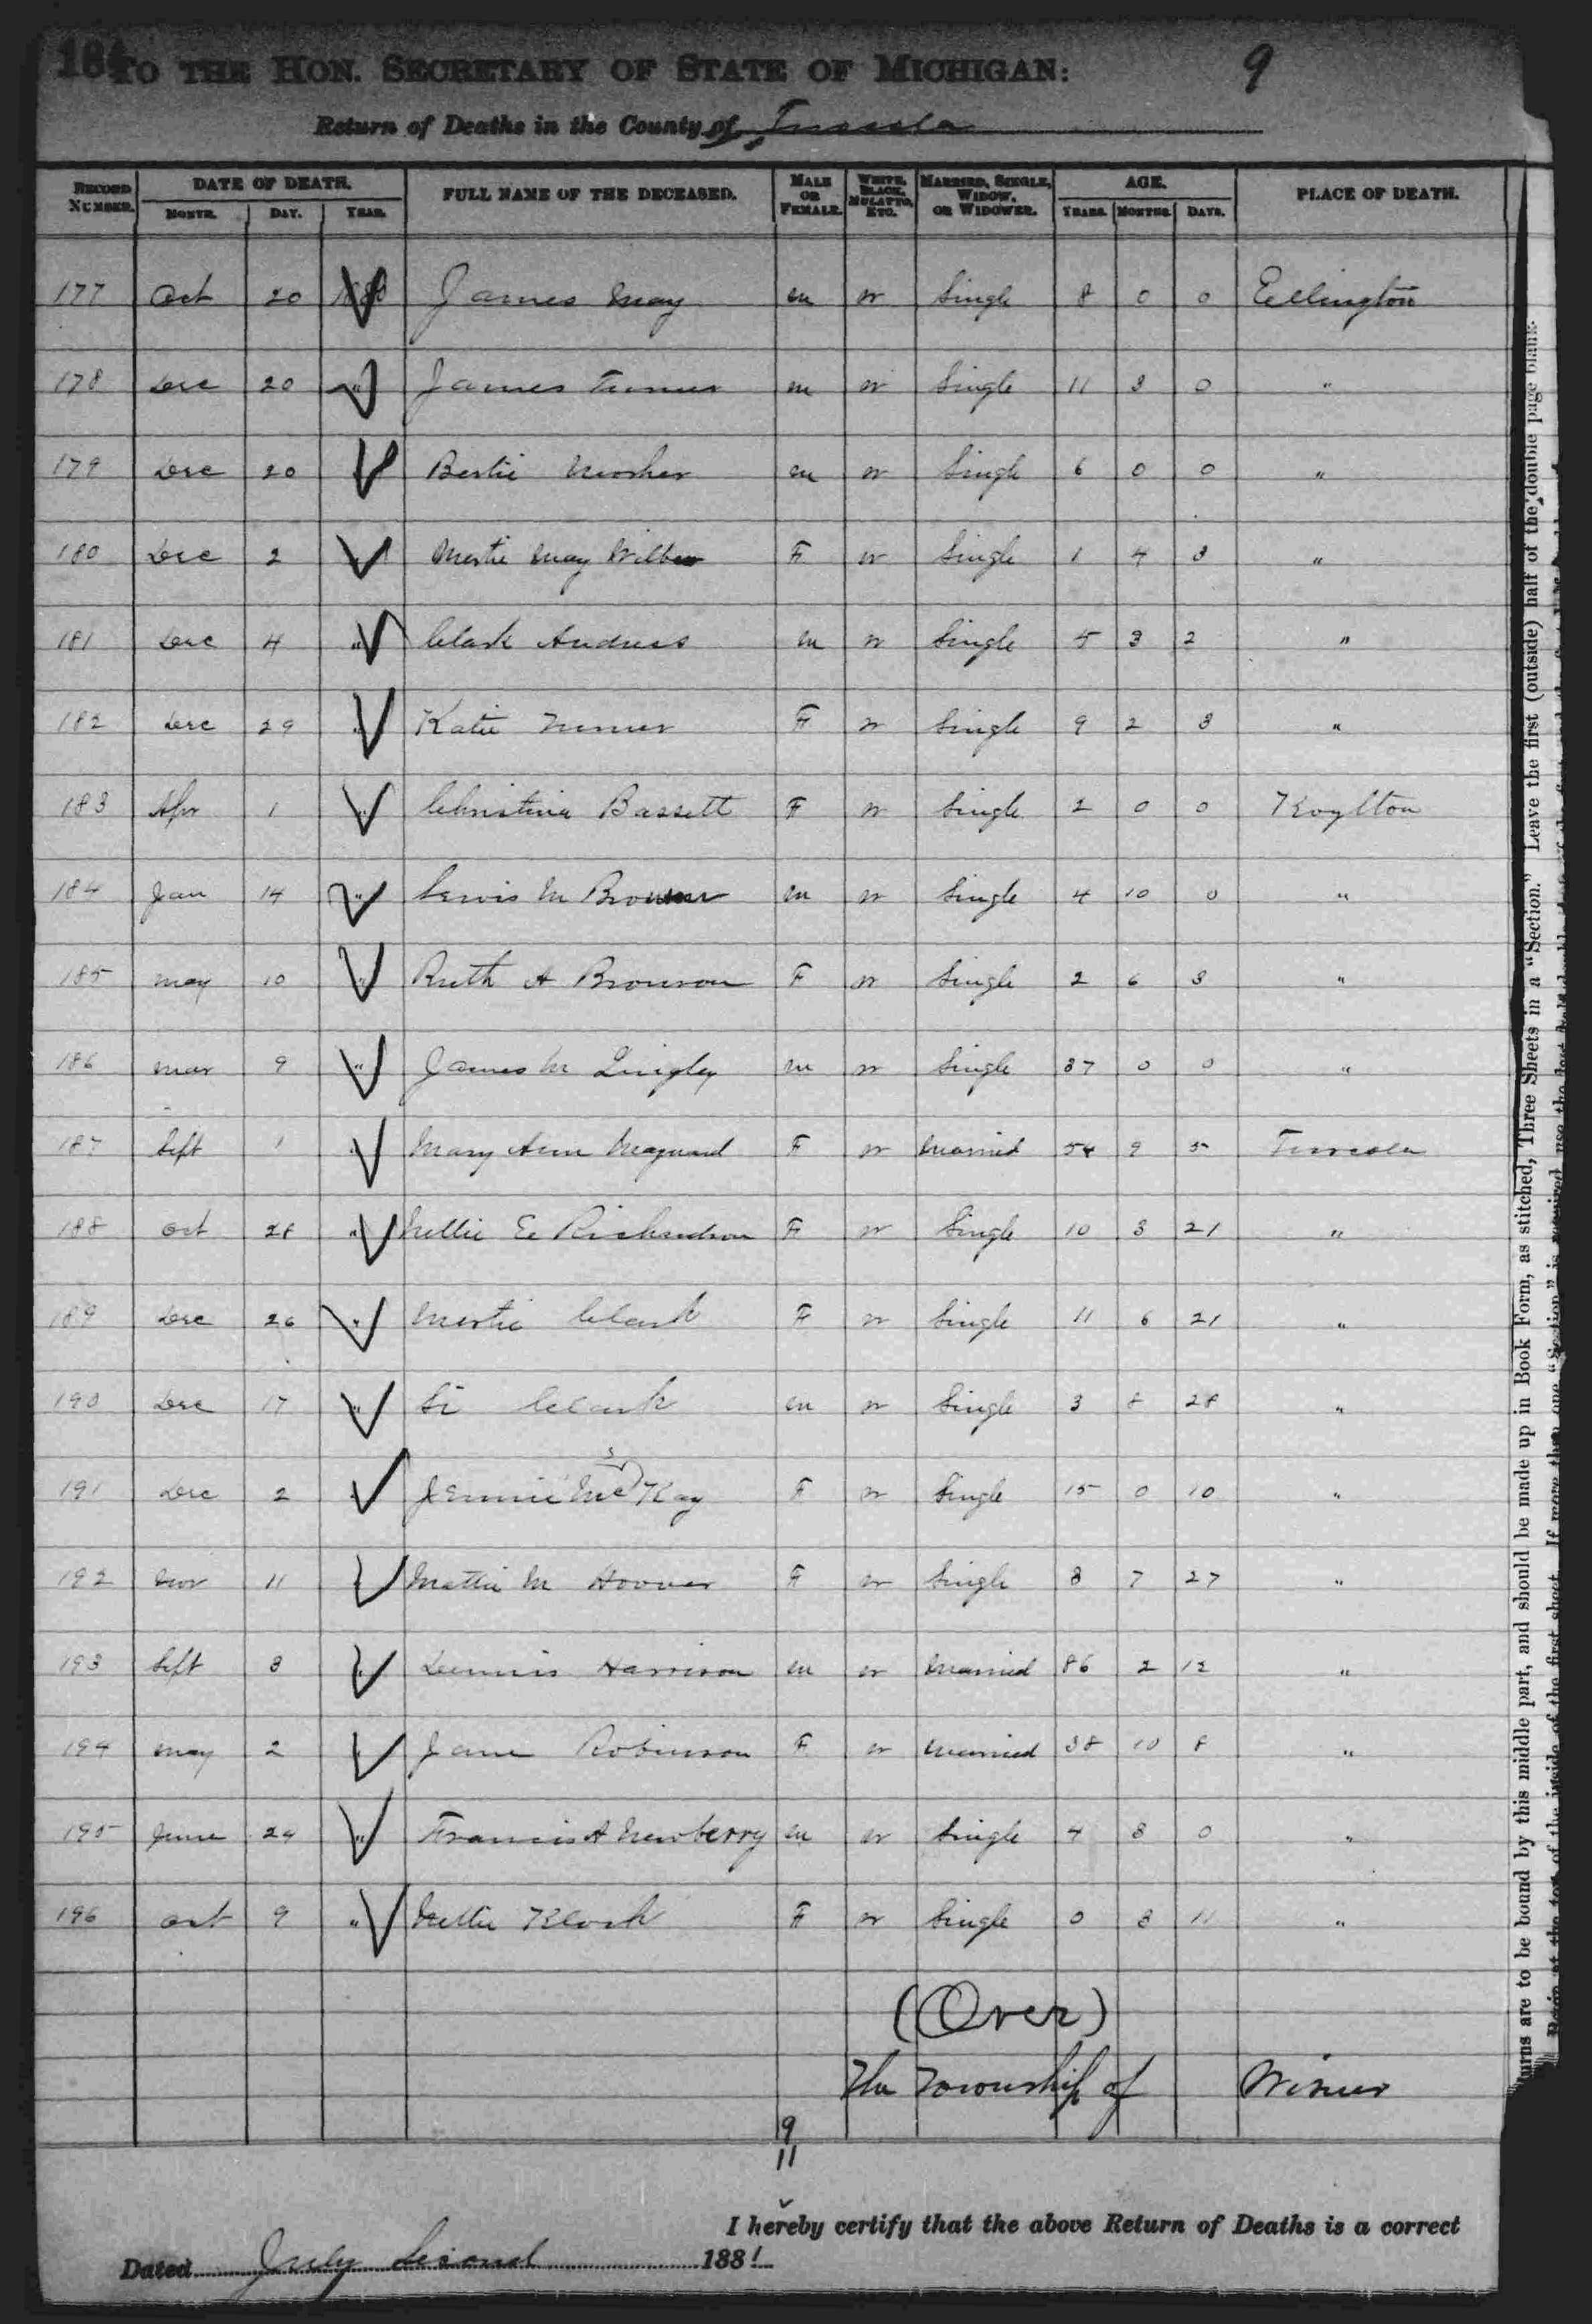 184
TO THE HON. SECRETARY OF STATE OF MICHIGAN: 9
Return of Deaths in the County of Tuscola
RECORD NUMBER. DATE OF DEATH. MONTH. DAY. YEAR. FULL NAME OF THE DECEASED. MALE OR FEMALE. WHITE, BLACK, MULATTO, ETC. MARRIED, SINGLE, WIDOW, OR WIDOWER. AGE. YEARS. MONTHS. DAYS. PLACE OF DEATH.
177 Oct 20 1880 James May m w Single 8 0 0 Ellington
178 Dec 20 " James Turner m w Single 11 3 0 "
179 Dec 20 Bertie Mosher m w Single 6 0 0 "
180 Dec 2 Mertie May Wilber F w Single 1 4 3 "
181 Dec 4 " Clark Andress m w Single 5 3 2 "
182 Dec 29 " Katie Turner F w Single 9 2 3 "
183 Apr 1 " Christina Bassett F w Single 2 0 0 Koylton
184 Jan 14 " Lewis M m w Single 4 10 0 "
185 May 10 " Ruth A Bronson F w Single 2 6 3 "
186 Mar 9 " James M Quigley m w Single 37 0 0 "
187 Sept 1 " Mary Ann Maynard F w Married 54 9 5 Tuscola
188 Oct 28 " Nellie E Richardson F w Single 10 3 21 "
189 Dec 26 " Mertie Clark F w Single 11 6 21 "
190 Dec 17 " Si Clark m w Single 3 8 28 "
191 Dec 2 " Jennie McKay F w Single 15 0 10 "
192 Nov 11 " Mattie M Hoover F w Single 3 7 27 "
193 Sept 3 " Dennis Harrison m w Married 86 2 12 "
194 May 2 " Jane Robinson F w Married 38 10 8 "
195 June 24 " Francis A Newberry m w Single 4 8 0 "
196 Oct 9 " Nettie Klock F w Single 0 8 11 "
(Over)
The Township of Wisner
9
11
I hereby certify that the above Return of Deaths is a correct
Dated July Second 1881
urns are to be bound by this middle part, and should be made up in Book Form, as stitched, Three Sheets in a "Section." Leave the first (outside) half of the double page blank.